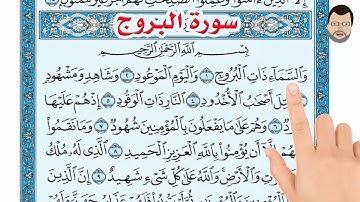 سورة البروج
بِسْمِ ٱللَّهِ ٱلرَّحْمَٰنِ ٱلرَّحِيمِ
وَٱلسَّمَآءِ ذَاتِ ٱلْبُرُوجِ ١ وَٱلْيَوْمِ ٱلْمَوْعُودِ ٢ وَشَاهِدٍ وَمَشْهُودٍ
قُتِلَ أَصْحَٰبُ ٱلْأُخْدُودِ ٤ ٱلنَّارِ ذَاتِ ٱلْوَقُودِ ٥ إِذْ هُمْ عَلَيْهَا
٦ وَهُمْ عَلَىٰ مَا يَفْعَلُونَ بِٱلْمُؤْمِنِينَ شُهُودٌ ٧ وَمَا نَقَمُوا۟
أَن يُؤْمِنُوا۟ بِٱللَّهِ ٱلْعَزِيزِ ٱلْحَمِيدِ ٨ ٱلَّذِى لَهُۥ مُلْكُ
وَٱلْأَرْضِ وَٱللَّهُ عَلَىٰ كُلِّ شَىْءٍ شَهِيدٌ ٩ إِنَّ ٱلَّذِينَ